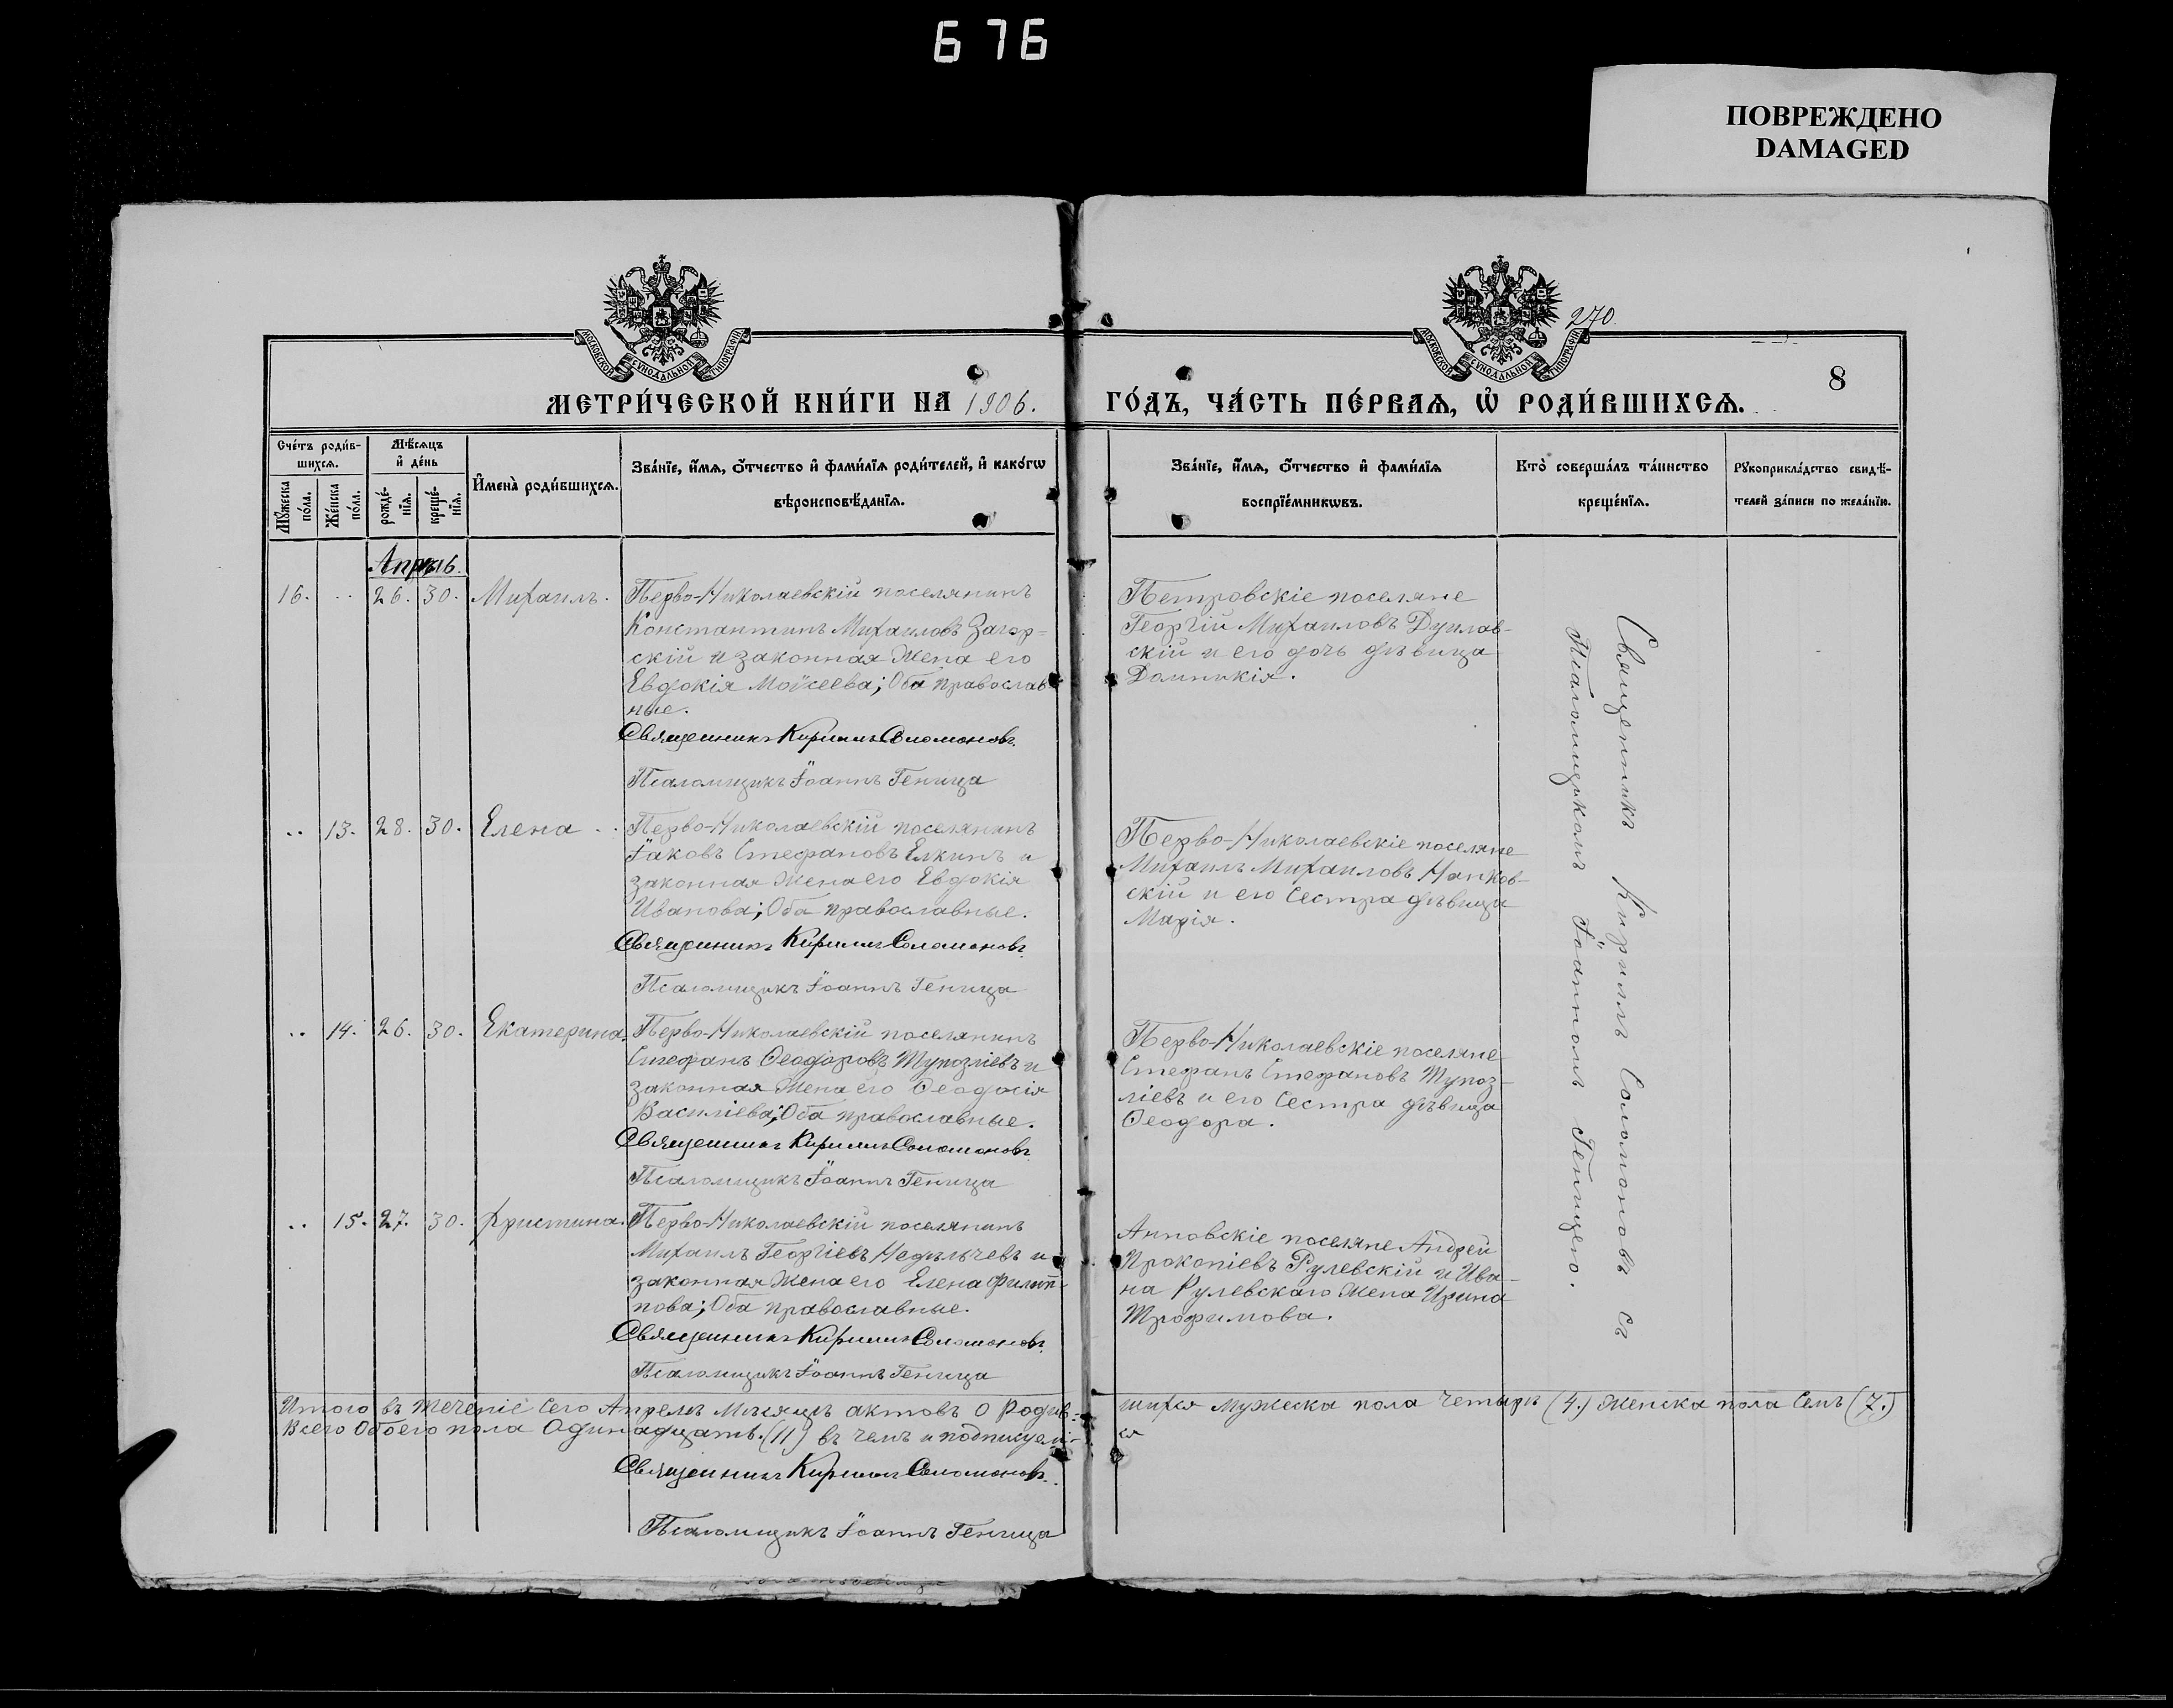 676
ПОВРЕЖДЕНО
DAMAGED
270
8
МОСКОВСКОЙ СѴНОДАЛЬНОЙ ТИПОГРАФІИ
МОСКОВСКОЙ СѴНОДАЛЬНОЙ ТИПОГРАФІИ
МЕТРИ́ЧЕСКОЙ КНИ́ГИ НА 1906.
ГО́ДЪ, ЧА́СТЬ ПЕ́РВАѦ, Ѡ РОДИ́ВШИХСѦ.
Сче́тъ роди́в-
шихсѧ.
Мѣ́сѧцъ
и҆ де́нь
Мꙋ́жеска по́ла.
Же́нска по́ла.
рожде́-
нїѧ.
креще́-
нїѧ.
И҆мена̀ роди́вшихсѧ.
Зва́нїе, и҆́мѧ, ѻ҆́тчество и҆ фами́лїѧ роди́телей, и҆ како́гѡ
вѣроисповѣ́данїѧ.
Зва́нїе, и҆́мѧ, ѻ҆́тчество и҆ фами́лїѧ
воспрїе́мникѡвъ.
Кто̀ соверша́лъ та́инство
креще́нїѧ.
Рꙋкоприкла́дство свидѣ́-
телей за́писи по жела́нїю.
Апрель.
16. .. 26. 30. Михаилъ.
Перво-Николаевскій поселянинъ
Константинъ Михаиловъ Загор=
скій и законная жена его
Евдокія Моисеева; Оба православ
ные.
Священникъ Кириллъ Соломоновъ.
Псаломщикъ Іоаннъ Геница
Петровскіе поселяне
Георгій Михаиловъ Дуплав-
скій и его дочь дѣвица
Домникія.
.. 13. 28. 30. Елена ..
Перво-Николаевскій поселянинъ
Іаковъ Стефановъ Елкинъ и
законная жена его Евдокія
Иванова; Оба православные.
Священникъ Кириллъ Соломоновъ.
Псаломщикъ Іоаннъ Геница
Перво-Николаевскіе поселяне
Михаилъ Михаиловъ Нанков-
скій и его сестра дѣвица
Марія.
.. 14. 26. 30. Екатерина.
Перво-Николаевскій поселянинъ
Стефанъ Ѳеодоровъ Тупозліевъ и
законная жена его Ѳеодосія
Василіева; Оба православные.
Священникъ Кириллъ Соломоновъ
Псаломщикъ Іоаннъ Геница
Перво-Николаевскіе поселяне
Стефанъ Стефановъ Тупоз-
ліевъ и его сестра дѣвица
Ѳеодора.
.. 15. 27. 30. Христина.
Перво-Николаевскій поселянинъ
Михаилъ Георгіевъ Недѣльчевъ и
законная жена его Елена Филип-
пова; Оба православные.
Священникъ Кириллъ Соломоновъ.
Псаломщикъ Іоаннъ Геница
Анновскіе поселяне Андрей
Прокопіевъ Рулевскій и Ива-
на Рулевскаго жена Ирина
Трофимова.
Священникъ Кириллъ Соломоновъ съ
Псаломщикомъ Іоанномъ Геницею.
Итого въ теченіе сего Апрель мѣсяцъ актовъ о родив-
шихся мужеска пола четыре (4.) женска пола семь (7.)
Всего обоего пола одинадцать. (11) въ чемъ и подписуем-
ся
Священникъ Кириллъ Соломоновъ.
Псаломщикъ Іоаннъ Геница